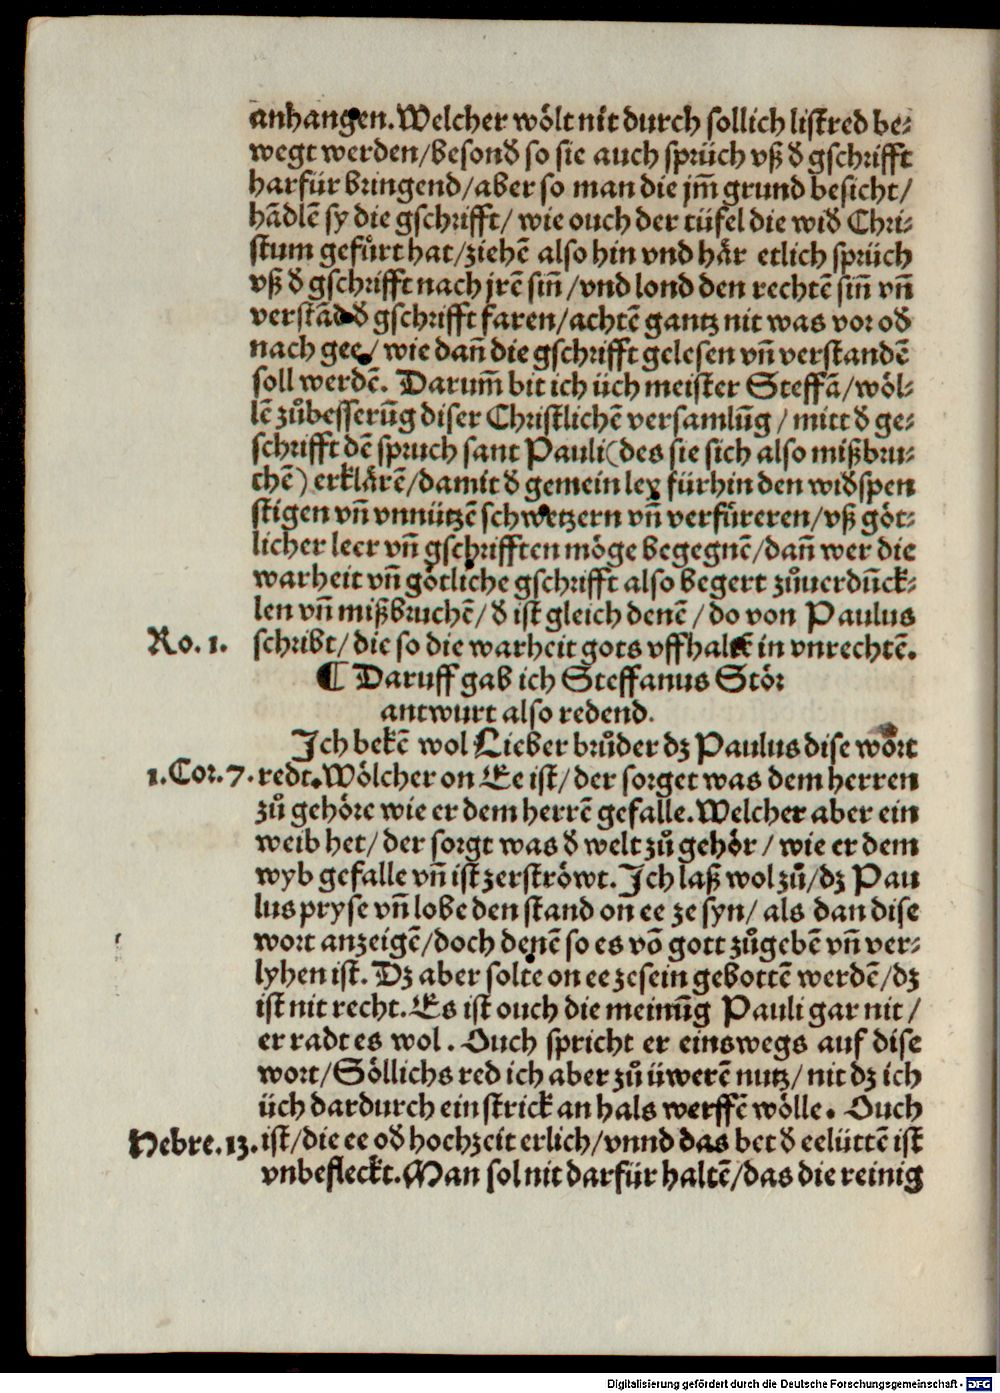 anhangen. Welcher wölt nit durch sollich listred be⸗
wegt werden/besond so sie auch sprüch vß d gschrifft
harfür bringend/aber so man die jm̃ grund besicht/
hādlē sy die gschrifft/ wie ouch der tüfel die wid Chri⸗
stum gefůrt hat/ziehē also hin vnd här etlich sprüch
vß d gschrifft nach jrē sin̄/vnd lond den rechtē sin̄ vn̄
verstād d gschrifft faren/achtē gantz nit was vor od
nach gee/ wie dan̄ die gschrifft gelesen vn̄ verstandē
soll werdē. Darum̄ bit ich üch meister Steffā/wöl⸗
lē zůbesserūg diser Christlichē versamlūg / mitt d ge⸗
schrifft dē spruch sant Pauli (des sie sich also mißbru⸗
chē) erklärē/damit d gemein ley fürhin den widspen
stigen vn̄ vnnützē schwetzern vn̄ verfüreren/vß göt⸗
licher leer vn̄ gschrifften möge begegnē/dan̄ wer die
warheit vn̄ götliche gschrifft also begert zůuerdūck⸗
len vn̄ mißbruchē/d ist gleich denē / do von Paulus
Ro. 1. schribt/die so die warheit gots vffhaltē in vnrechtē.
¶ Daruff gab ich Steffanus Stör
antwurt also redend.
Ich bekē wol Lieber brůder dz Paulus dise wort
1. Cor. 7. redt. Wölcher on Ee ist/ der sorget was dem herren
zů gehöre wie er dem herrē gefalle. Welcher aber ein
weib het/ der sorgt was d welt zů gehör / wie er dem
wyb gefalle vn̄ ist zerströwt. Ich laß wol zů/dz Pau
lus pryse vn̄ lobe den stand on ee ze syn/ als dan dise
wort anzeigē/doch denē so es vō gott zůgebē vn̄ ver⸗
lyhen ist. Dz aber solte on ee zesein gebottē werdē/dz
ist nit recht. Es ist ouch die meinūg Pauli gar nit /
er radt es wol. Ouch spricht er einswegs auf dise
wort/Söllichs red ich aber zů üwerē nutz/ nit dz ich
üch dardurch ein strick an hals werffē wölle. Ouch
Hebre. 13. ist/die ee od hochzeit erlich/vnnd das bet d eelüttē ist
vnbefleckt. Man sol nit darfür haltē/das die reinig
Digitalisierung gefördert durch die Deutsche Forschungsgemeinschaft - DFG